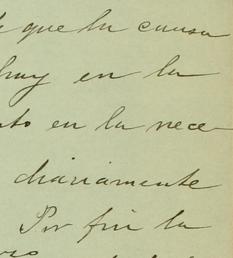 que la causa
hay en la
en la nece
diariamente
Por fin la